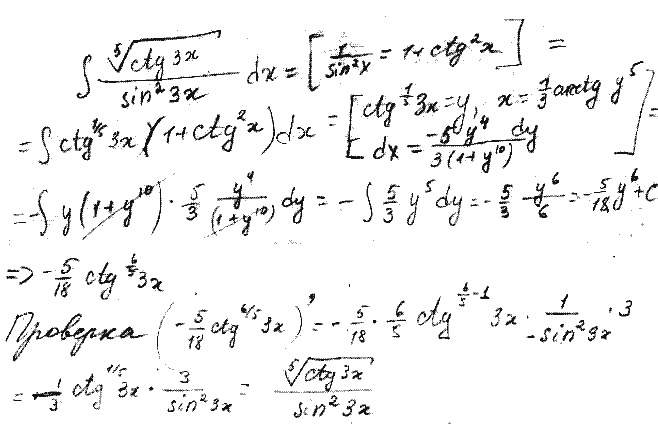 ∫ ⁵√(ctg 3x) / sin² 3x dx = [ 1/sin² x = 1 + ctg² x ] =
= ∫ ctg^(1/5) 3x (1 + ctg² x) dx = [ ctg^(1/5) 3x = y, x = 1/3 arcctg y⁵ dx = -5 y⁴ dy / 3(1 + y¹⁰) ] =
= -∫ y (1 + y¹⁰) · 5/3 y⁴/(1 + y¹⁰) dy = -∫ 5/3 y⁵ dy = -5/3 · y⁶/6 = -5/18 y⁶ + C
=> -5/18 ctg^(6/5) 3x
Проверка (-5/18 ctg^(6/5) 3x)' = -5/18 · 6/5 ctg^(6/5 - 1) 3x · 1/(-sin² 3x) · 3
= -1/3 ctg^(1/5) 3x · 3/sin² 3x = ⁵√(ctg 3x) / sin² 3x